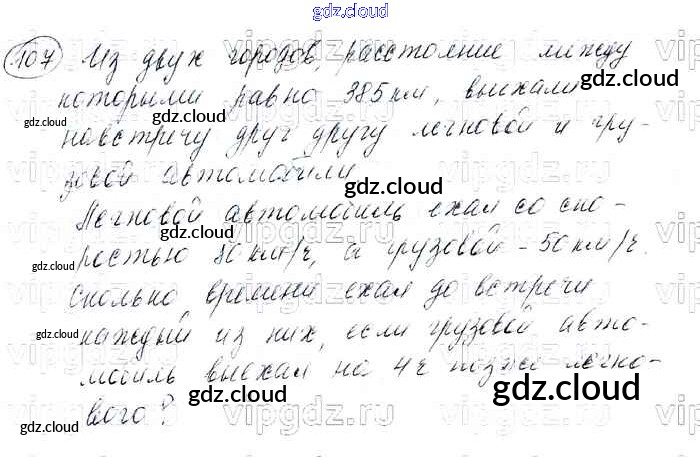 gdz.cloud
107 Из двух городов, расстояние между
которыми равно 385 км, выехали
gdz.cloud
gdz.cloud
навстречу друг другу легковой и гру-
зовой автомобили
gdz.cloud
Легковой автомобиль ехал со ско-
ростью 80 км/ч, а грузовой - 50 км/ч.
gdz.cloud
gdz.cloud
Сколько времени ехал до встречи
каждый из них, если грузовой авто-
gdz.cloud
мобиль выехал на 4 ч позже легко-
gdz.cloud
gdz.cloud
вого?
gdz.cloud
vipgdz.ru